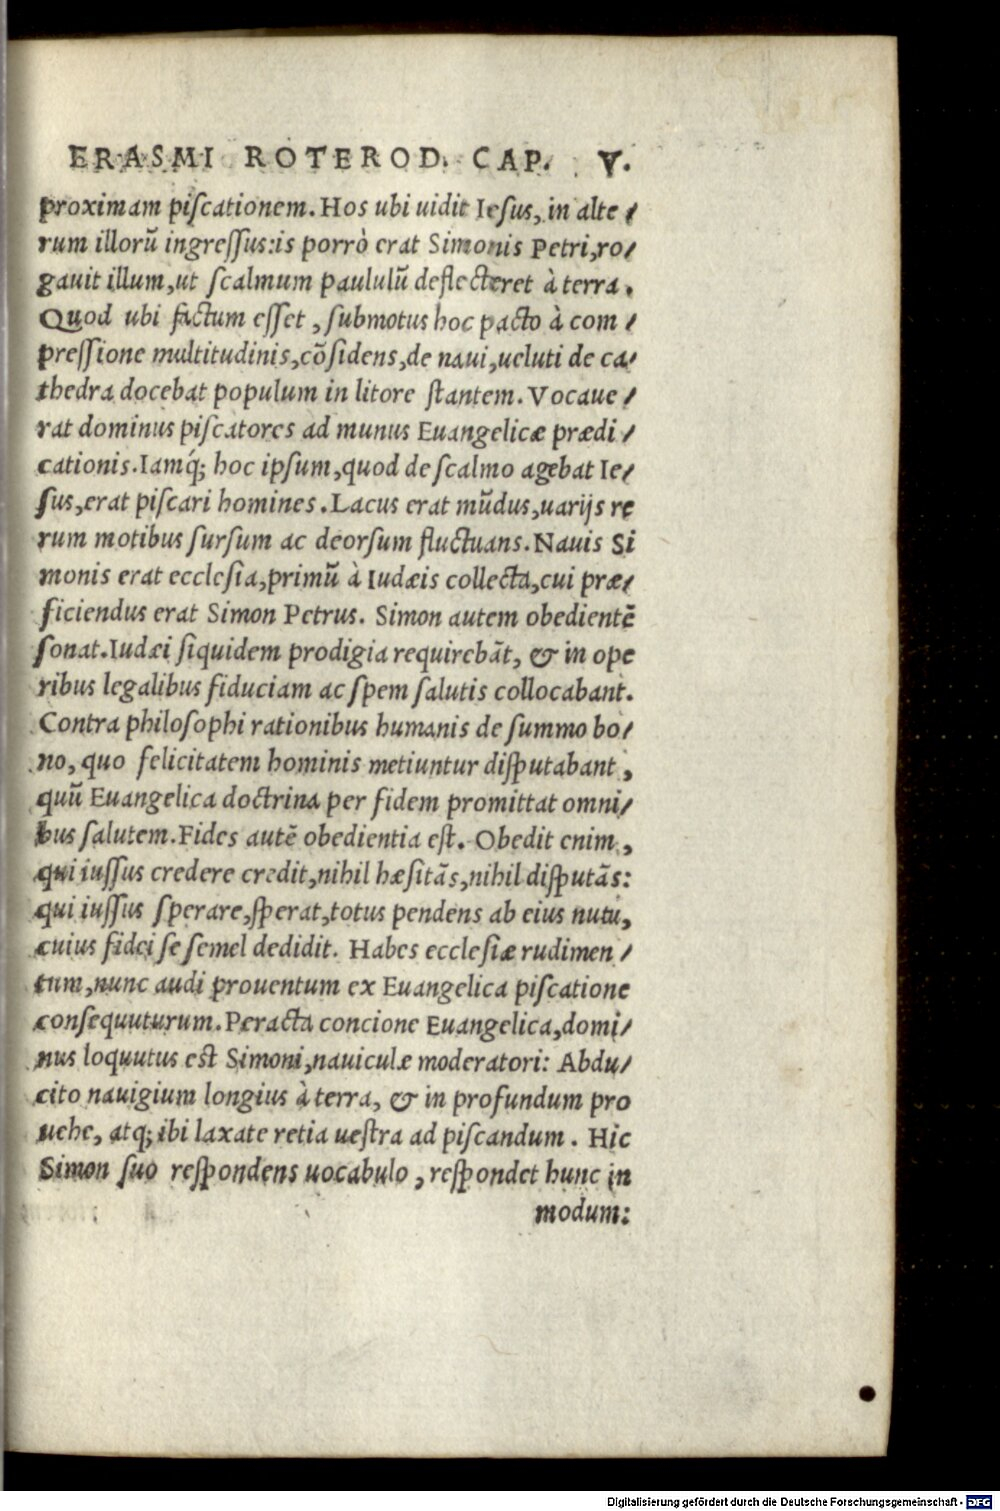 ERASMI ROTEROD. CAP. V.
proximam piſcationem. Hos ubi uidit Ieſus, in alte/
rum illorũ ingreſſus: is porrò erat Simonis Petri, ro/
gauit illum, ut ſcalmum paululũ deflecteret à terra.
Quod ubi factum eſſet, ſubmotus hoc pacto à com/
preſſione multitudinis, cõſidens, de naui, ueluti de ca/
thedra docebat populum in litore ſtantem. Vocaue/
rat dominus piſcatores ad munus Euangelicæ prædi/
cationis. Iamq́; hoc ipſum, quod de ſcalmo agebat Ie/
ſus, erat piſcari homines. Lacus erat mũdus, uarijs re
rum motibus ſurſum ac deorſum fluctuans. Nauis Si
monis erat eccleſia, primũ à Iudæis collecta, cui præ/
ficiendus erat Simon Petrus. Simon autem obedientẽ
ſonat. Iudæi ſiquidem prodigia requirebãt, & in ope
ribus legalibus fiduciam ac ſpem ſalutis collocabant.
Contra philoſophi rationibus humanis de ſummo bo/
no, quo felicitatem hominis metiuntur diſputabant,
quũ Euangelica doctrina per fidem promittat omni/
bus ſalutem. Fides autẽ obedientia eſt. Obedit enim,
qui iuſſus credere credit, nihil hæſitãs, nihil diſputãs:
qui iuſſus ſperare, ſperat, totus pendens ab eius nutu,
cuius fidei ſe ſemel dedidit. Habes eccleſiæ rudimen/
tum, nunc audi prouentum ex Euangelica piſcatione
conſequuturum. Peracta concione Euangelica, domi/
nus loquutus eſt Simoni, nauiculæ moderatori: Abdu/
cito nauigium longius à terra, & in profundum pro
uehe, atq; ibi laxate retia ueſtra ad piſcandum. Hic
Simon ſuo reſpondens uocabulo, reſpondet hunc in
modum:
Digitalisierung gefördert durch die Deutsche Forschungsgemeinschaft - DFG